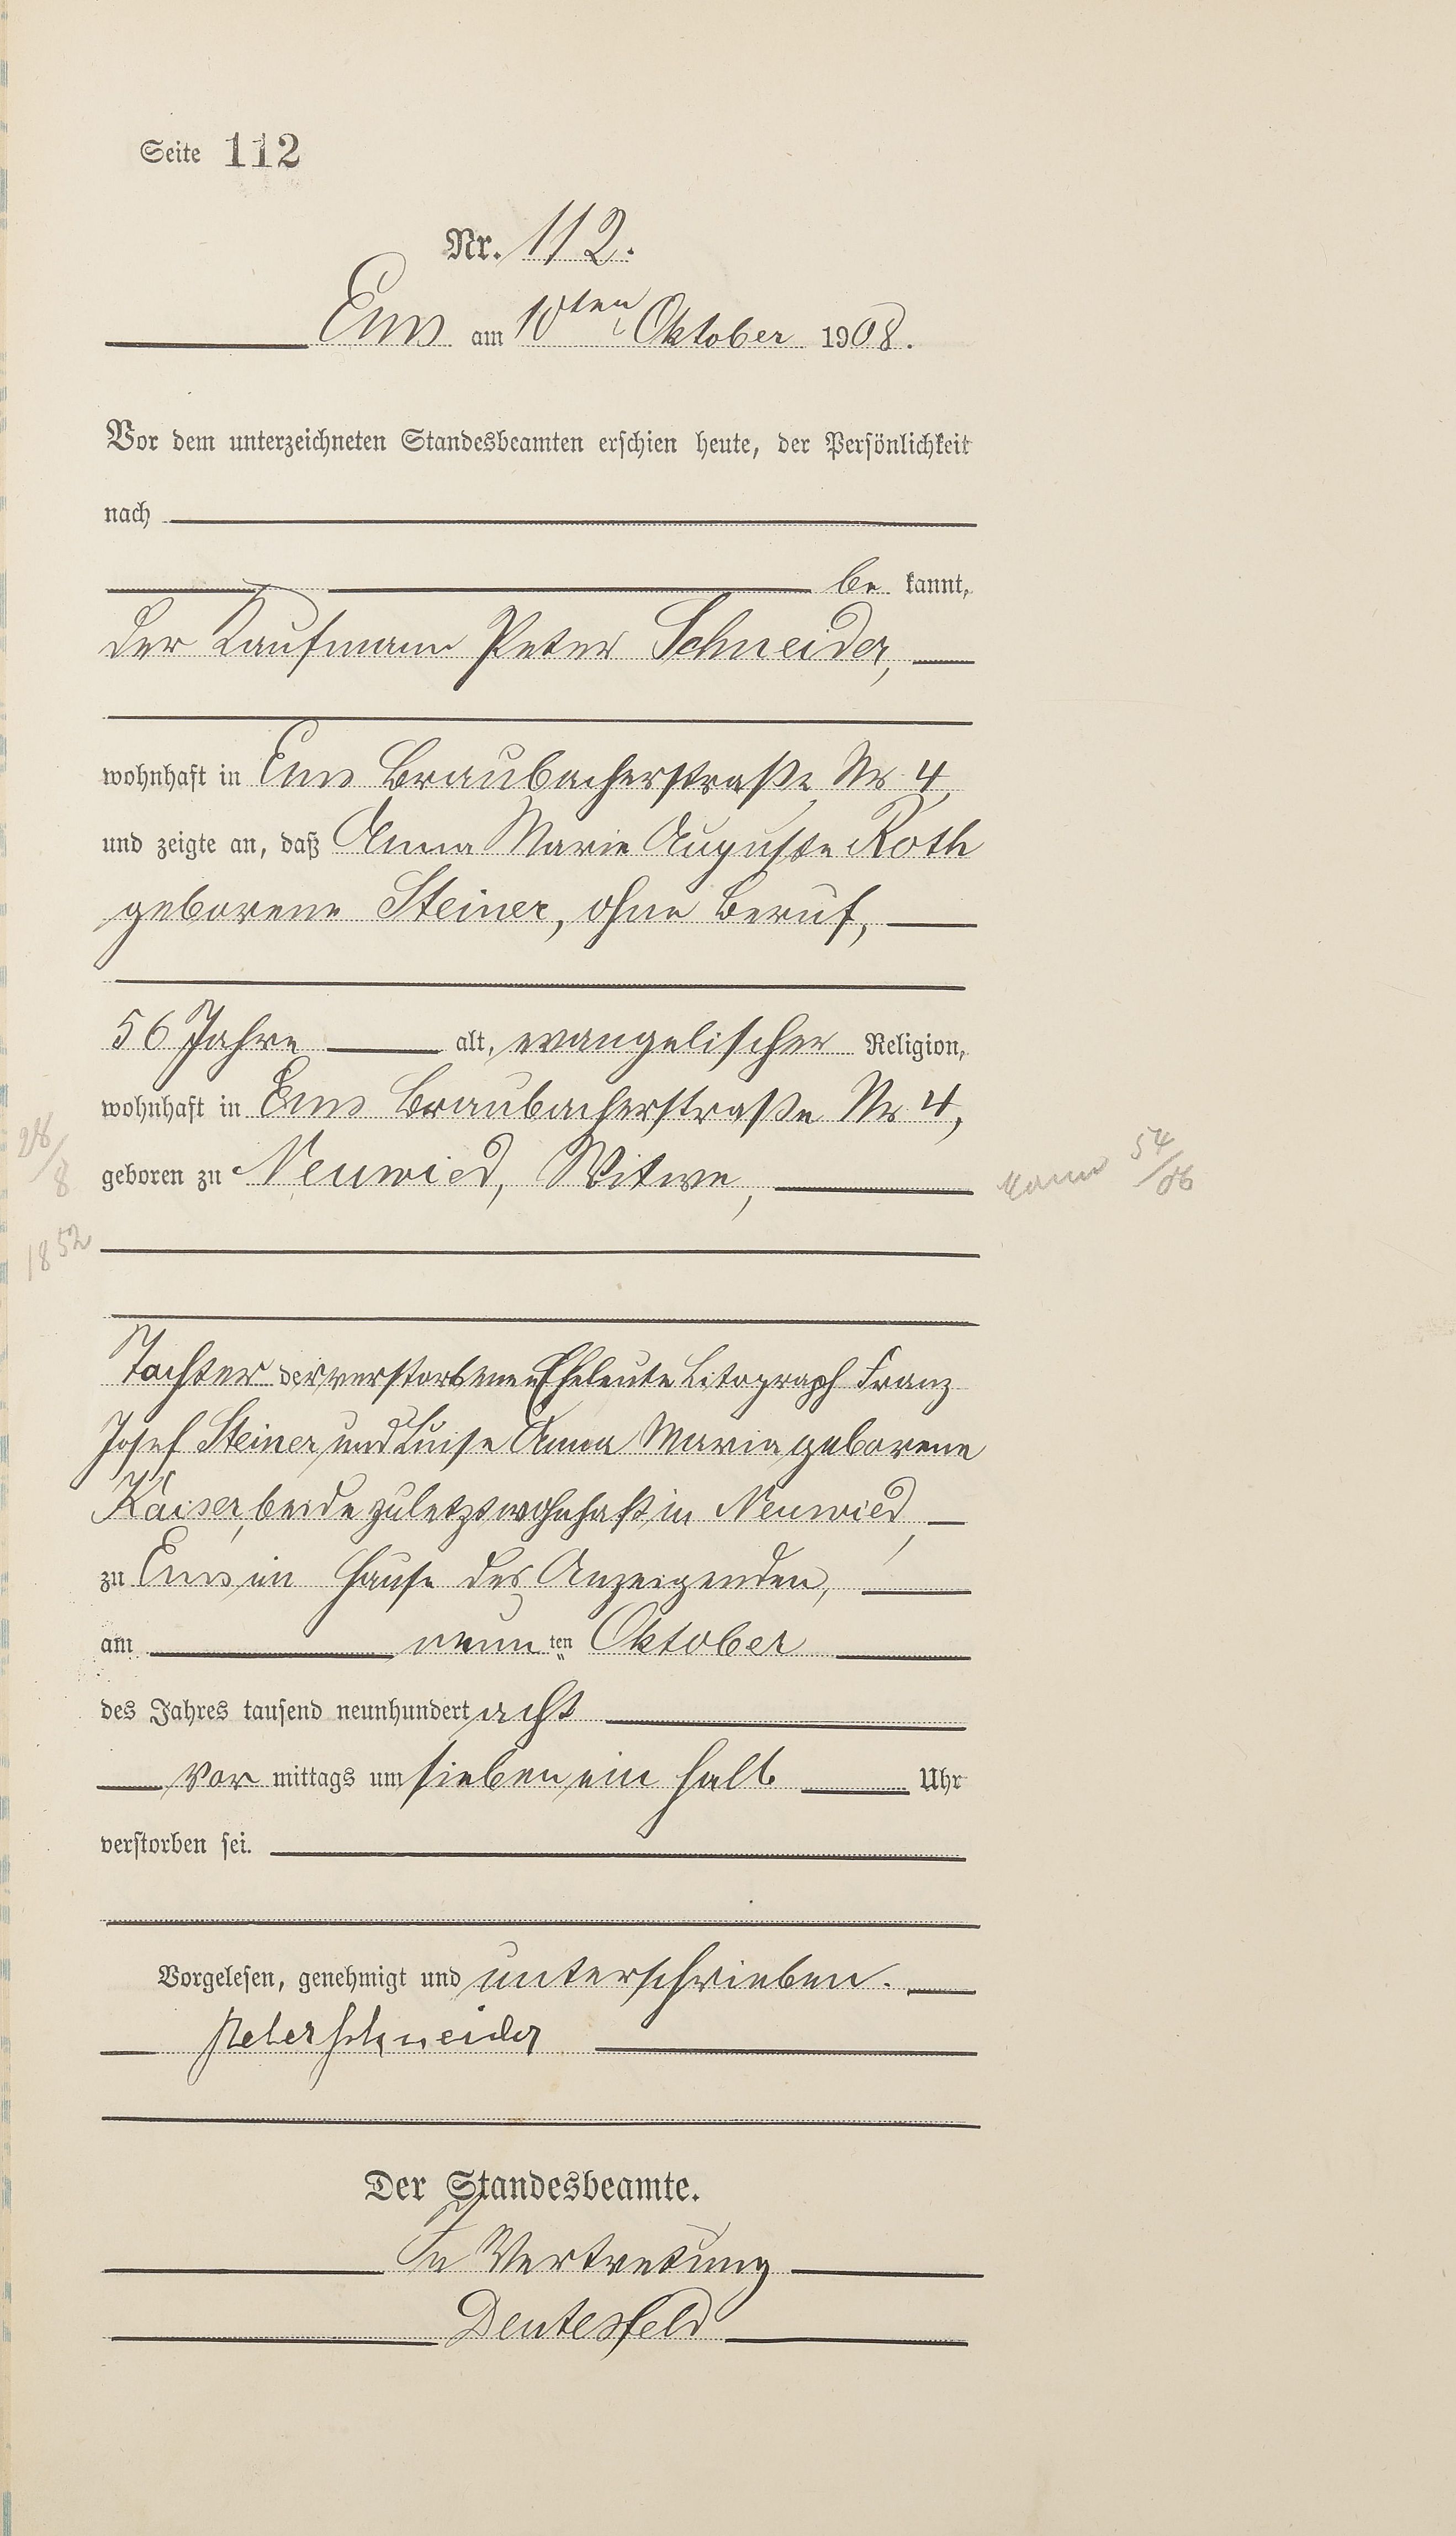 Seite 112
Nr. 112.
Ems am 10ten Oktober 1908.
Vor dem unterzeichneten Standesbeamten erschien heute, der Persönlichkeit
nach
be kannt,
der Kaufmann Peter Schneider,
wohnhaft in Ems Braubacherstraße Nr 4,
und zeigte an, daß Anna Marie Auguste Roth
geborene Steiner, ohne Beruf,
56 Jahre alt, evangelischer Religion,
wohnhaft in Ems Braubacherstraße Nr 4,
28/8
geboren zu Neuwied, Witwe,
Mann 54/06
1852
Tochter der verstorbenen Eheleute Litograph Franz
Josef Steiner und Luise Anna Maria geborene
Kaiser, beide zuletzt wohnhaft in Neuwied,
zu Ems im Hause des Anzeigenden,
am neun ten Oktober
des Jahres tausend neunhundert acht
Vor mittags um sieben ein halb Uhr
verstorben sei.
Vorgelesen, genehmigt und unterschrieben.
Peter Schneider
Der Standesbeamte.
In Vertretung
Deutesfeld